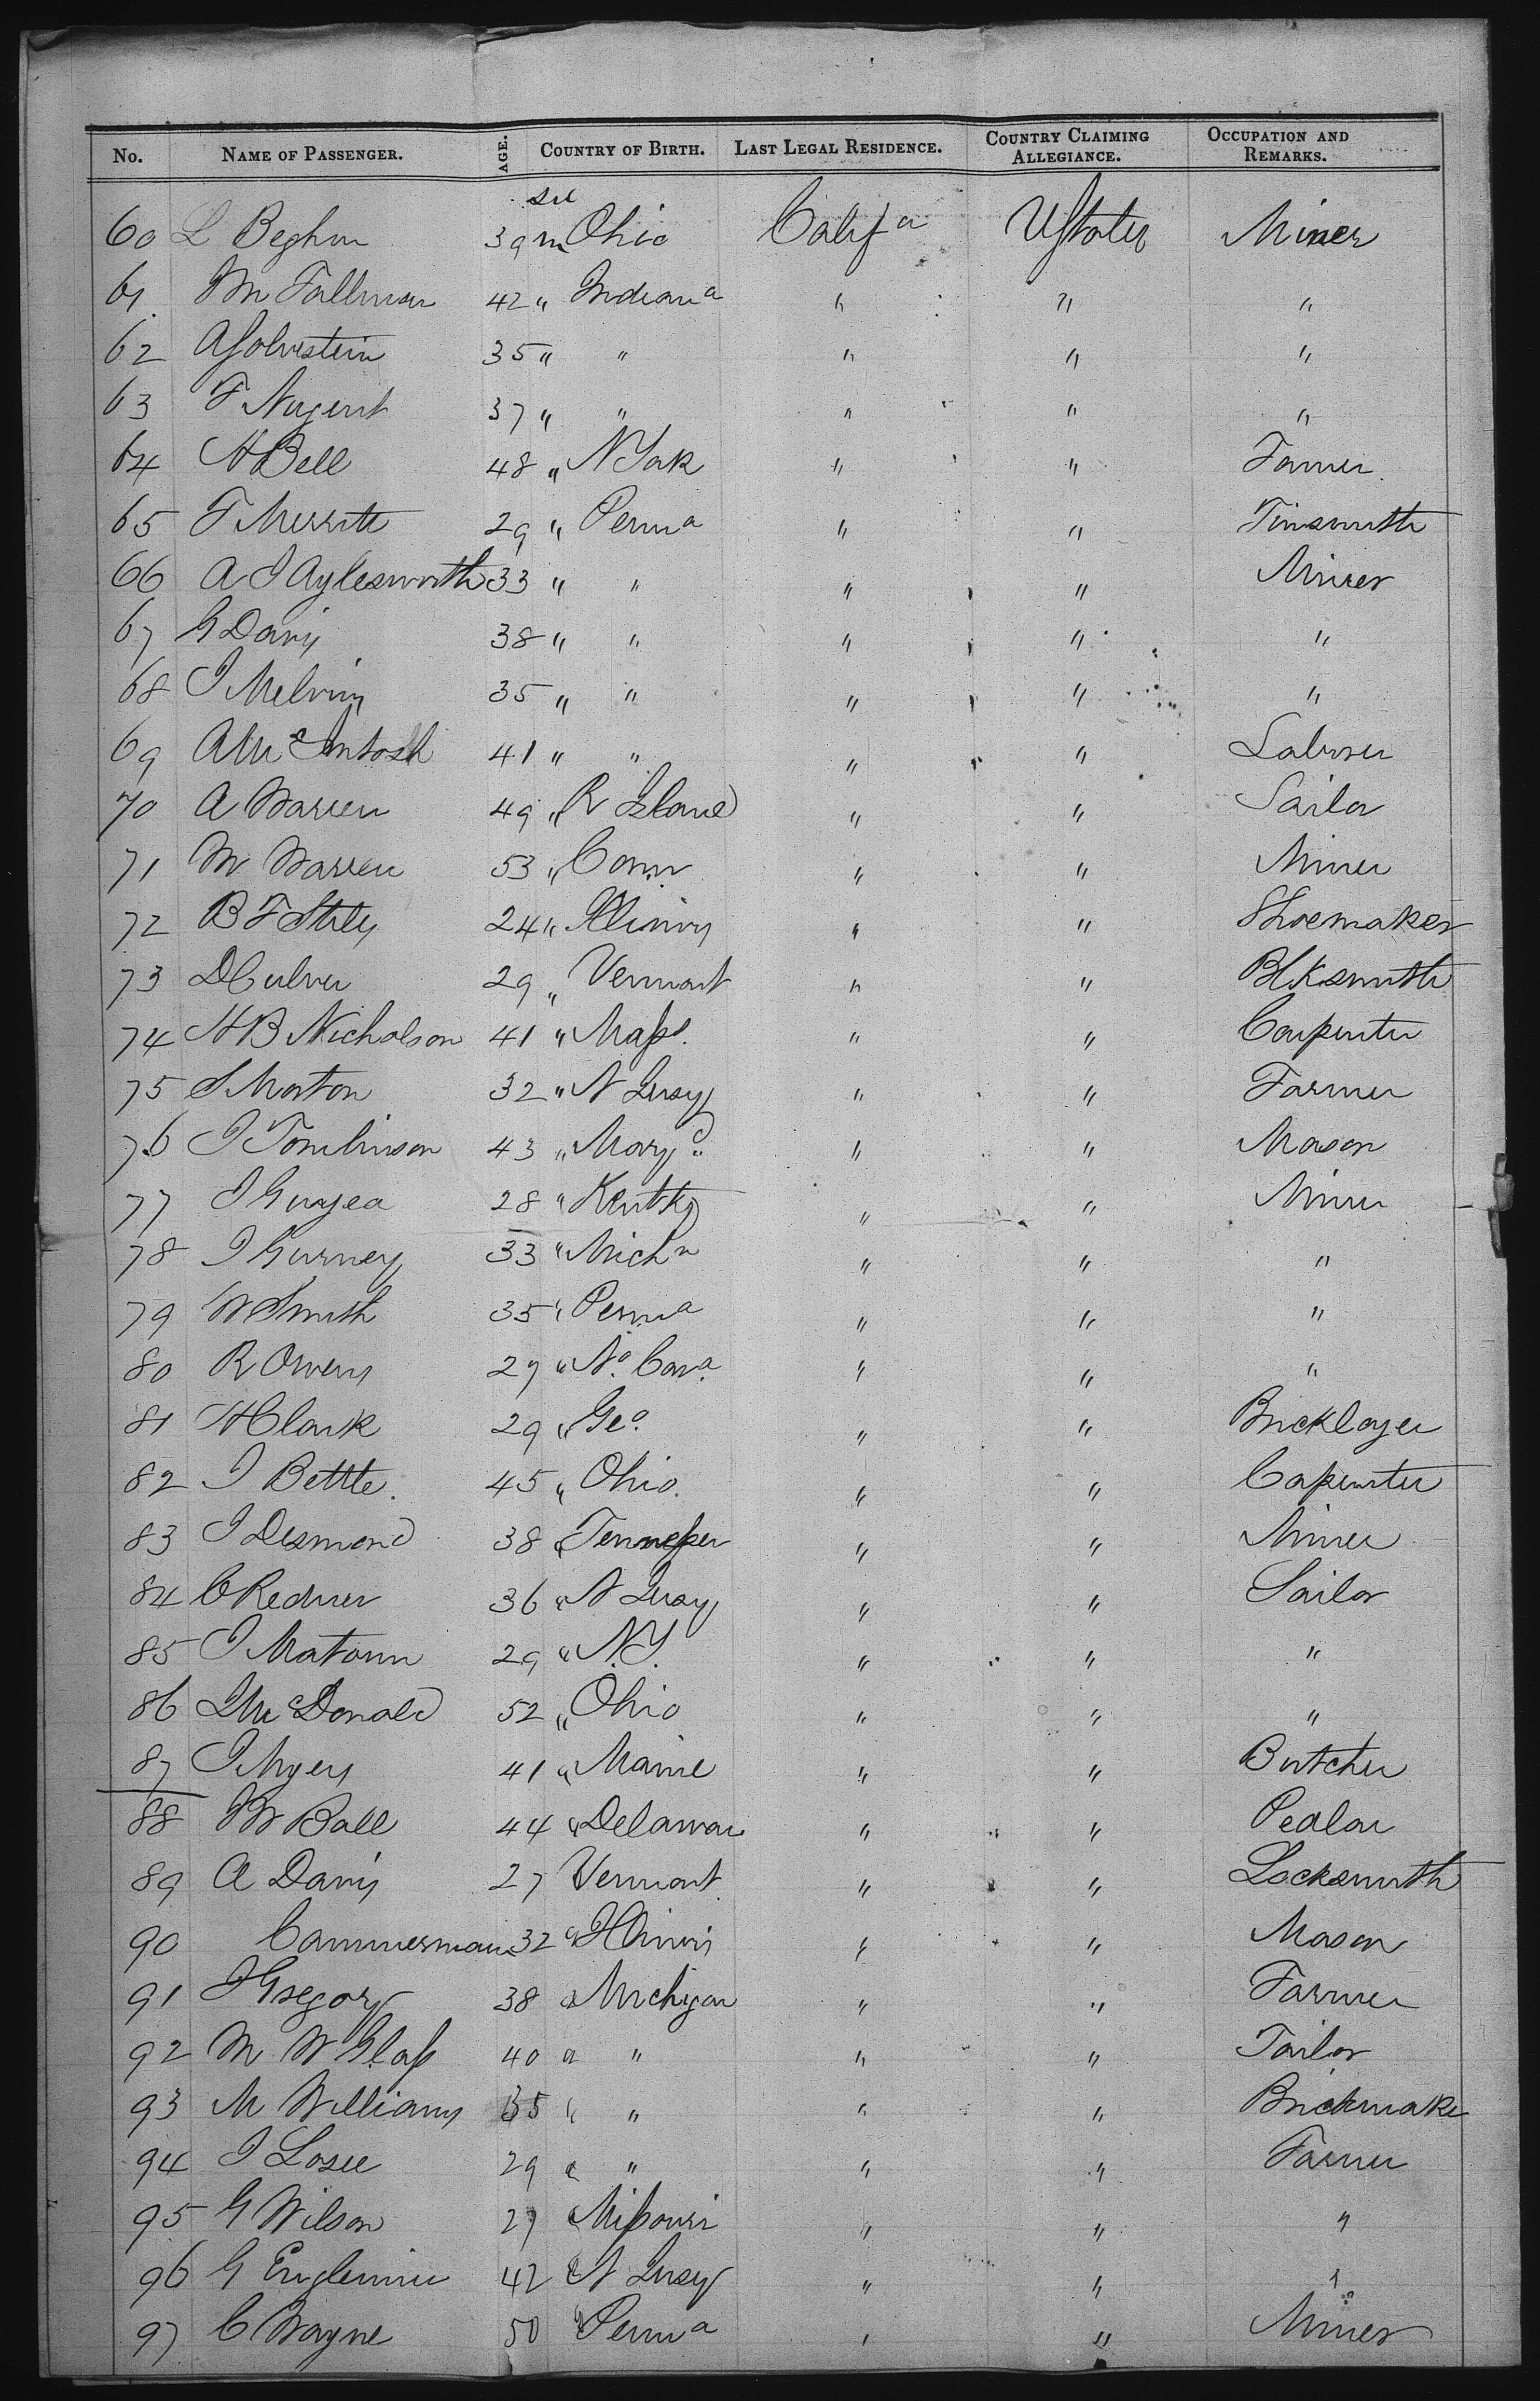 No. NAME OF PASSENGER. AGE. COUNTRY OF BIRTH. LAST LEGAL RESIDENCE. COUNTRY CLAIMING ALLEGIANCE. OCCUPATION AND REMARKS.
60 L Beghm 39 m Ohio Calif a UStates Miner
61. Wm Tallman 42 " Indiana " " "
62 A Golvstein 35 " " " " "
63 F Nugent 37 " " " " "
64 H Bell 48 " N York " " Farmer
65 F Merritt 29 " Penn a " " Tinsmith
66 A J Aylesworth 33 " " " " Miner
67 G Davis 38 " " " " "
68 J Melvin 35 " " " " "
69 A Mc Intosh 41 " " " " Laborer
70 A Warren 49 " R Island " " Sailor
71 W Warren 53 " Conn " " Miner
72 B F Stiles 24 " Illinois " " Shoemaker
73 D Culver 29 " Vermont " " Blksmith
74 H B Nicholson 41 " Mass. " " Carpenter
75 S Morton 32 " N Jersey " " Farmer
76 J Tomlinson 43 " Mary d " " Mason
77 J Guyea 28 " Kentky " " Miner
78 J Gurney 33 " Mich n " " "
79 W Smith 35 " Penn a " " "
80 R Owens 27 " No. Car a. " " "
81 H Clark 29 " Geo. " " Bricklayer
82 J Bettle. 45 " Ohio. " " Carpenter
83 J Desmond 38 " Tennessee " " Miner
84 C Redner 36 " N Jersey " " Sailor
85 J Matoun 29 " N.Y. " " "
86 L Mc Donald 52 " Ohio " " "
87 J Myers 41 " Maine " " Butcher
88 W Ball 44 " Delaware " " Pedlar
89 A Davis 27 Vermont " " Locksmith
90 Cammerman 32 " Illinois " " Mason
91 J Gregory 38 " Michigan " " Farmer
92 M W Glass 40 " " " " Tailor
93 M Williams 35 " " " " Brickmaker
94 J Losee 29 " " " " Farmer
95 G Wilson 27 " Missouri " " "
96 G 42 " N Jersey " " "
97 C Wayne 50 " Penn a " " Miner